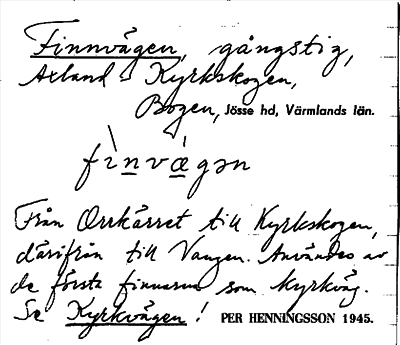 Finnvägen, gångstig,
Axland - Kyrkskogen,
Bogen, Jösse hd, Värmlands län.
fìnvágən
Från Orrkärret till Kyrkskogen,
därifrån till Vangen. Användes av
de första finnarna som kyrkväg.
Se Kyrkvägen! PER HENNINGSSON 1945.